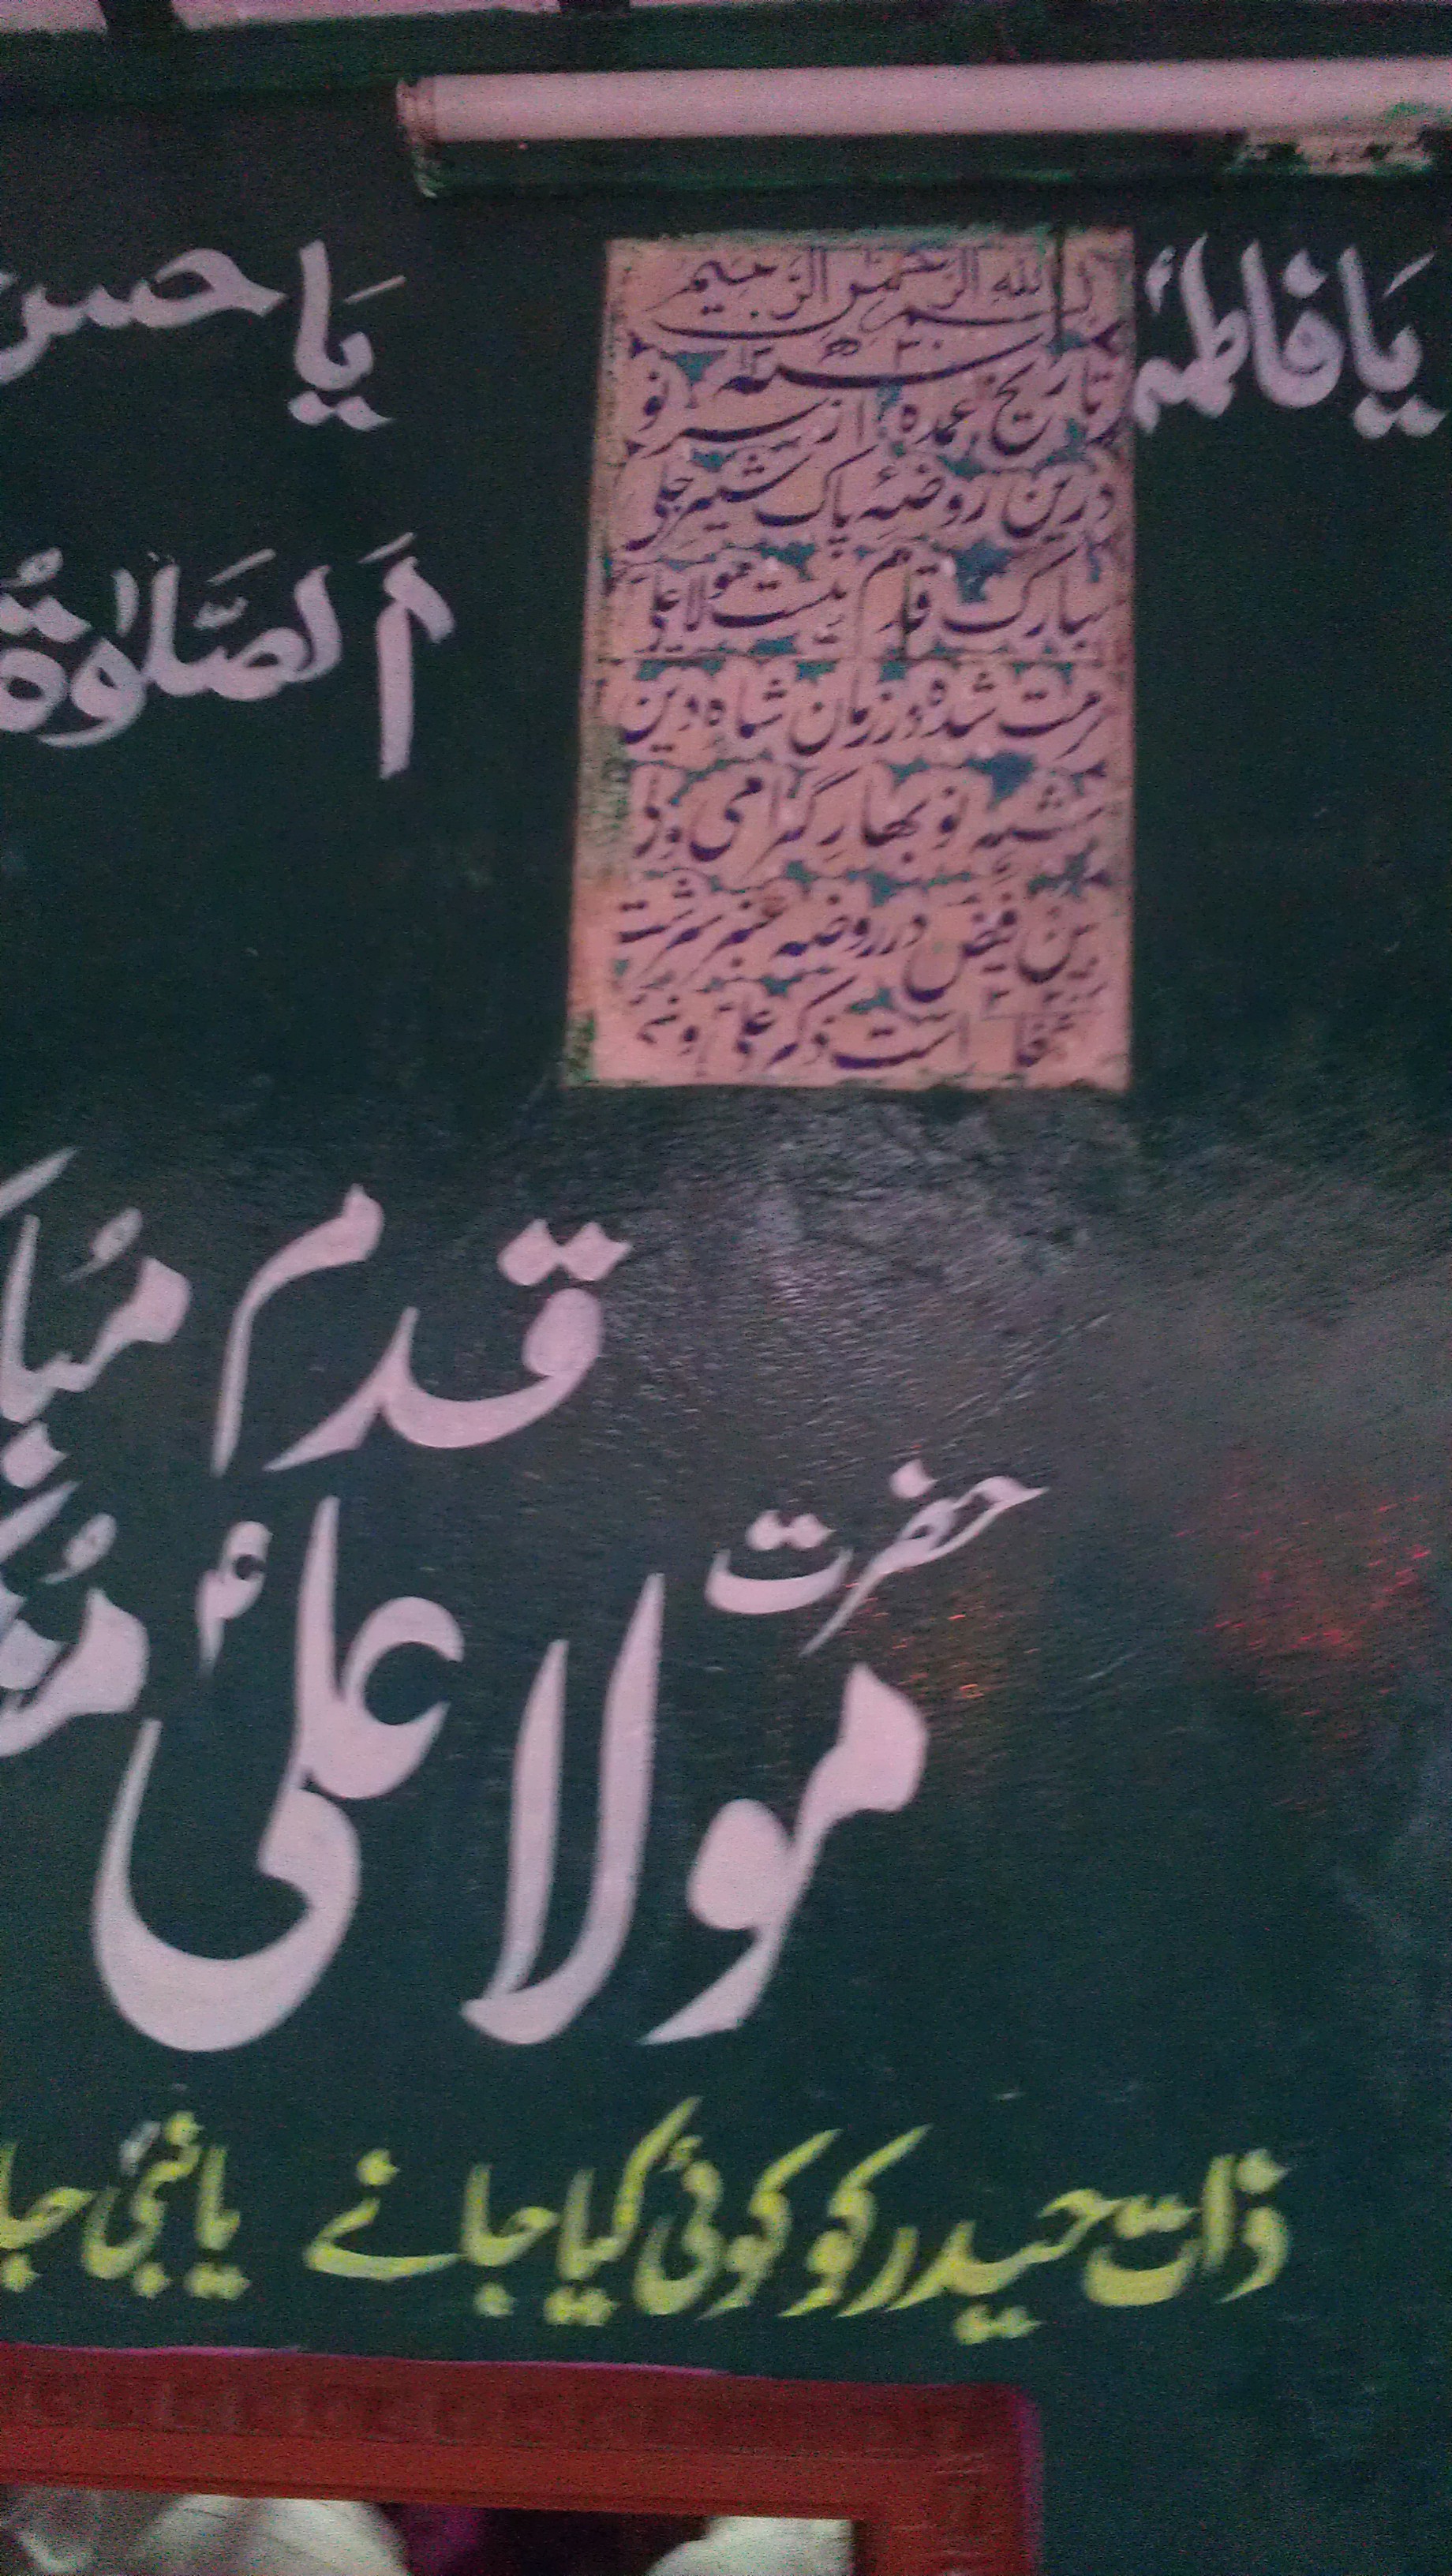 یا فاطمہؑ
یا حسن
بسم الله الرحمن الرحیم
تاریخ عمدہ از سر نو
درین روضۂ پاک شبیر جلی
مبارک قدم ہست مولا علی
مرمت شدہ در زمان شاہ دین
نو بهار گرامی ولی
فیض در روضہ عنبر سرشت
شفا است ذکر علی و نبی
اَلصَّلٰوةُ
قدم
حضرت
مولا علیؑ
ذات حیدر کو کوئی کیا جانے یا نبیؐ جا